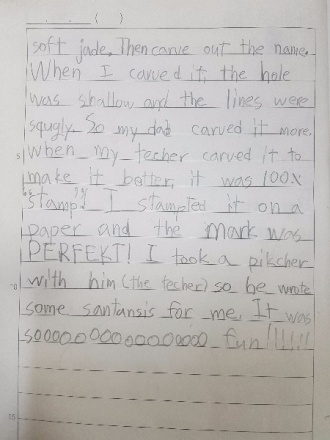 soft jade. Then carve out the name.
When I carved it, the hole
was shallow and the lines were
squgly. So my dad carved it more.
5 when my techer carved it to
make it better, it was 100x
stamp! I stampted it on a
paper and the mark was
PERFEKT! I took a pikcher
10 with him (the techer) so he wrote
some santansis for me. It was
sooooooooooooooo fun!!!!!!
15